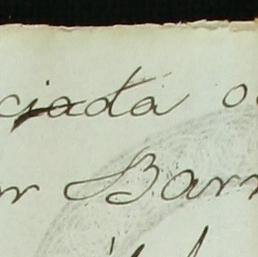 ciada o
or Barr